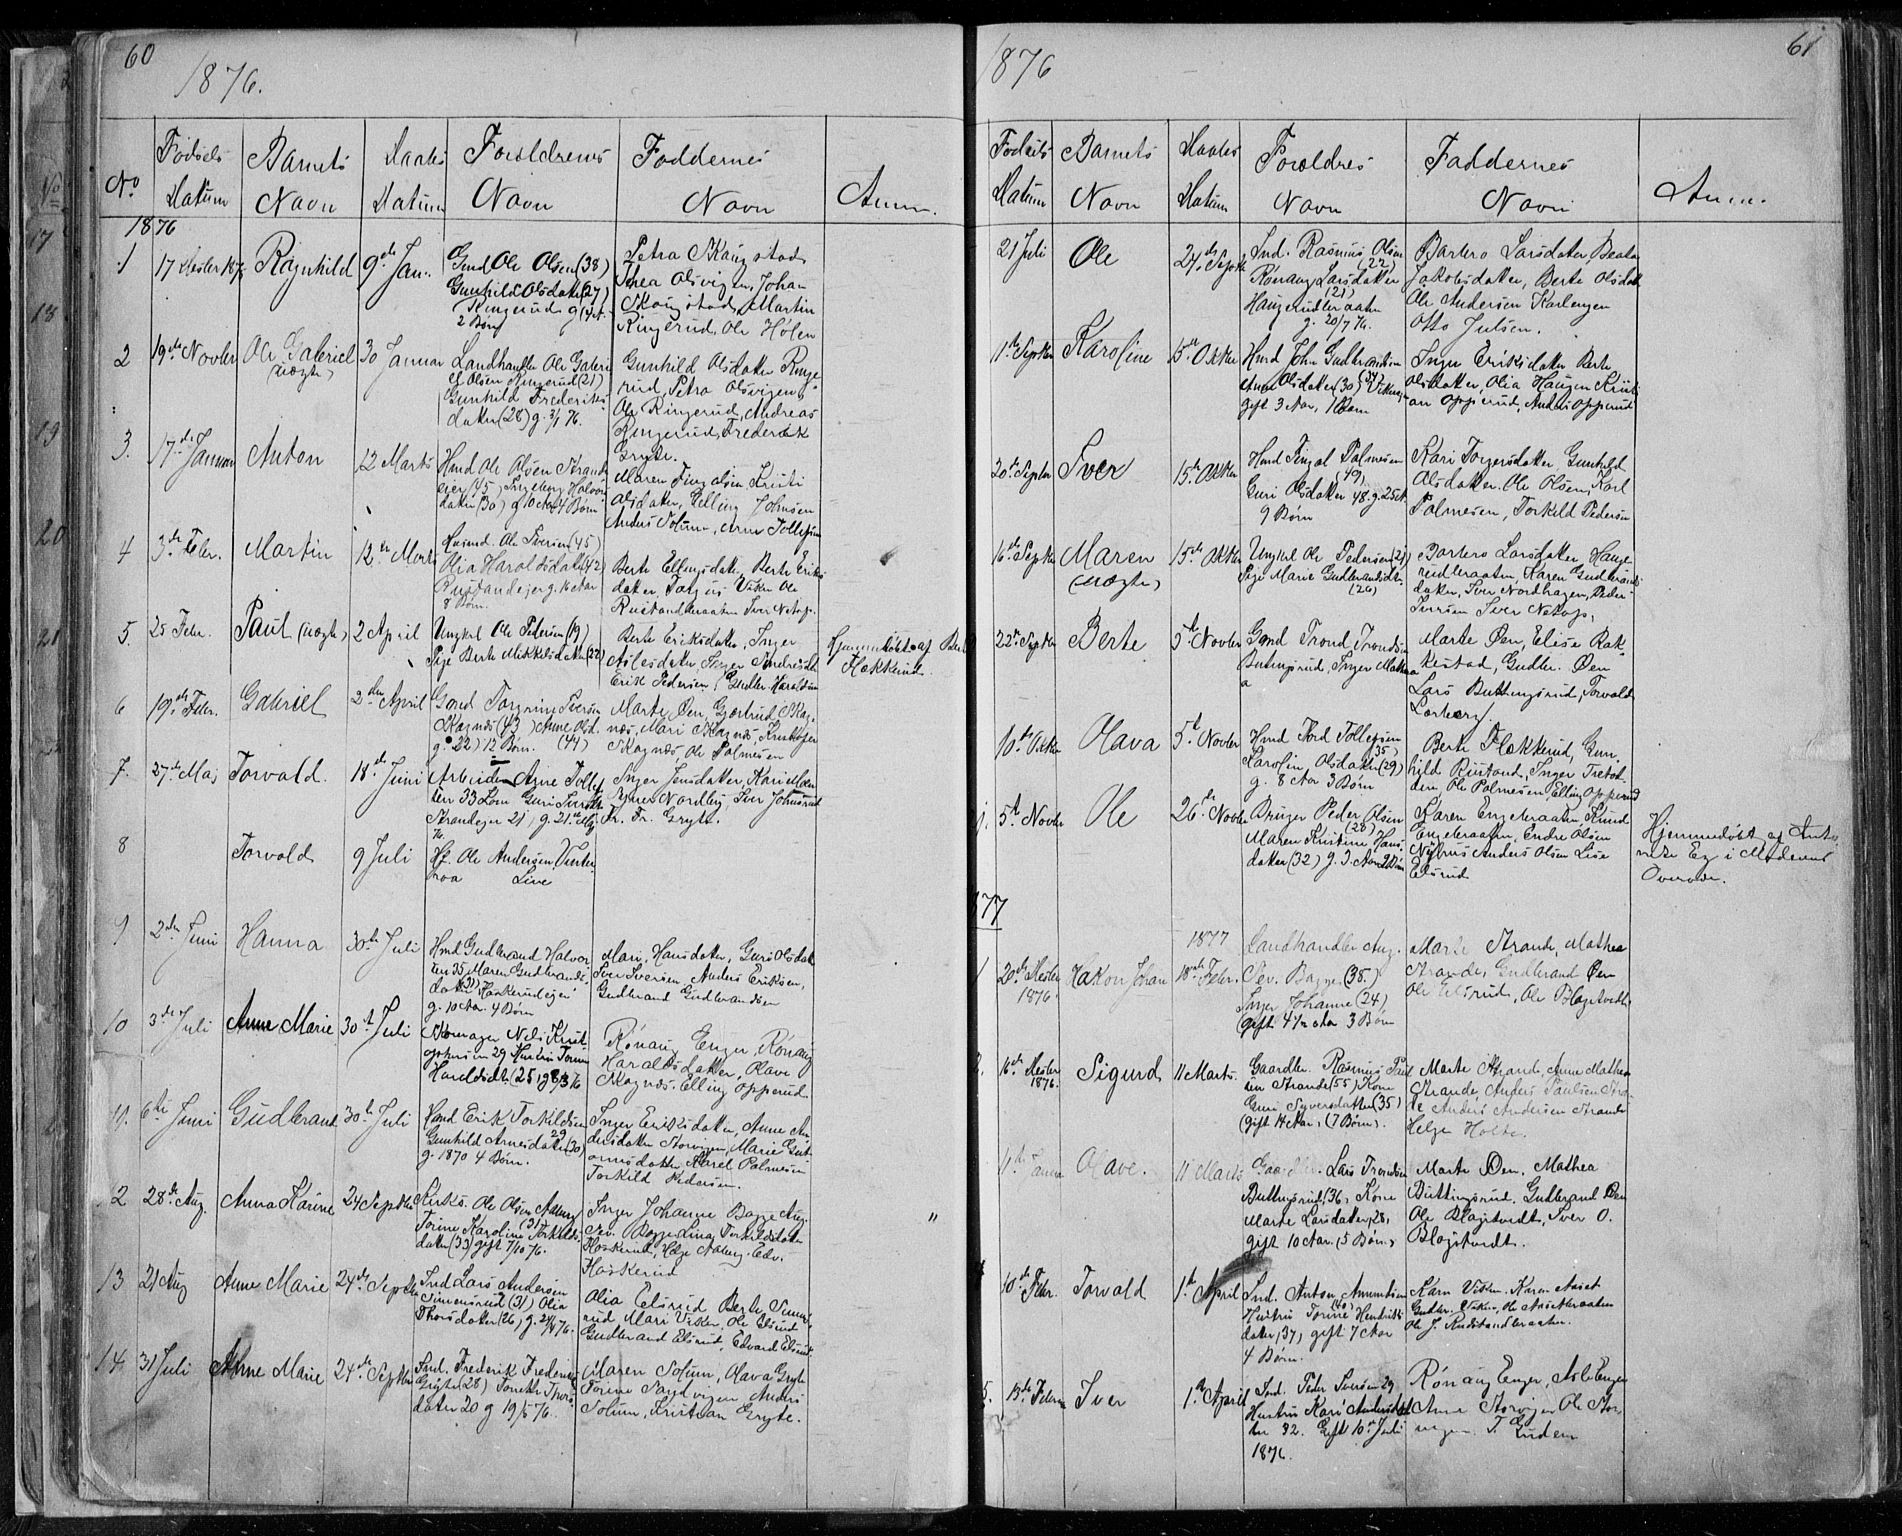 60
1876.
No
Fødsels
Datum
Barnets
Navn
Daabs
Datum
Forældrenes
Navn
Faddernes
Navn
Anm.
1876
1
17
Ragnhild
9de Jan.
Gmd Ole Olsen (38)
Gunhild Olsdatter (27)
Ringerud
2 Børn
Petra Skaugstad
Thea Olsvigen, Johan
Skaugstad, Martin
Ringerud, Ole Hølen
2
19de Novbr
Ole Gabriel
(uægte)
30 Januar
Landhandler Ole Gabri
el Olsen Ringerud (21)
Gunhild Frederiks
datter (28) g. 3/1 76.
Gunhild Olsdatter Ringe
rud, Petra Olsvigen
Ole Ringerud, Andreas
Ringerud, Frederik
Gryte.
3.
17de Januar
Anton
12 Marts
Hmd Ole Olsen Strand
eier (45) Ingeborg Halvor
datter (30) g 10 Aar 4 Børn
Maren Fingalsen, Kristi
Olsdatter, Elling Johnsen
Anders Solum, Arne Tollefsen
4
3de Febr.
Martin
12te Marts
Husmd. Ole Iversen (45)
Olia Haraldsdatter (42)
Rustandeier g. 16 Aar
8 Børn.
Berte Ellingsdatter, Berte Eriks
datter, Torgus Viken Ole
Rustandbraaten Iver Netop.
5
25 Febr.
Paul (uægte)
2 April
Ungkrl Ole Pedersen (19)
Pige Berte Mikkelsdatter (22)
Berte Eriksdatter, Inger
Aslesdatter, Inger Andreasdt
Erik Pedersen, Gudbr. Haraldsen
Hjemmedøbt af Berte
Flækkerud.
6
19de Febr.
Gabriel
2den April
Gmd Torgrim Iversen
Skagnæs (43) Anne Olsd.
g. 22) 12 Børn. (44)
Marte Øen, Gjertrud Skag
næs, Mari Skagnæs, Kristofer
Skagnæs, Ole Palmesen
7.
27de Maj
Torvald.
18de Juni
Arbeider Arne Tollef
sen 33 Lom Guri Iversdt
Strandeger 21, g. 21de Maj
76.
Inger Jensdatter, Kari Moen
Syver Nordby, Iver Johnsrud
Fr. Fr. Gryte.
8
Torvald
9 Juli
Hf. Ole Andersen Vester
roa Live
9
2den Juni
Hanna
30te Juli
Hmd Gudbrand Halvor
sen 35 Maren Gudbrands
datter (31) Haskerudejer
g. 10 Aar. 4 Børn
Mari, Hansdatter, Guri Olsdatt
Iver Iversen, Anders Eriksen,
Gudbrand Gudbrandsen
10
3de Juli
Anne Marie
30te Juli
Skomager Nels Krist
ophersen 29 Hustru Torine
Haraldsdt. (25) g 8/3 76
Rønaug Enger, Rønaug
Haralds datter, Olave
Skagnæs, Elling Opperud
11.
6te Juni
Gudbrand
30te Juli
Hmd Erik Torkildsen
29
Gunhild Arnesdatter (30)
g. 1870 4 Børn.
Inger Eriksdatter, Anne An
dersdatter Storvigen, Marie Gut
ormsdatter, Karel Palmesen
Torkild Pedersen.
2
28de Aug.
Anna Karine
24 Septbr
Kirks. Ole Olsen Aaberg
Torine Karoline Torkilds (31)
datter (33) gift 7/10 76.
Inger Johanne Bagge Aug.
Sev. Bagge Lina Torkildsdatter
Haskerud, Helge Aaberg. Edv.
Haskerud
"
13
21 Aug
Anne Marie
24de Septbr
Ind Lars Andersen
Simensrud (31) Olia
Thorsdatter (26) g. 24/4 76.
Olia Elsrud Berte Simens
rud Mari Viken, Ole Elsrud
Gudbrand Elsrud, Edvard Elsrud
14
31 Juli
Anne Marie
24de Septbr
Ind. Frederik Frederiks
Gryte (28) Torette Thors
datter 20 g 19/5 76.
Maren Solum, Olava Gryte
Torine Sandvigen Anders
Solum, Kristian Gryte.
61
1876
Fødsels
Datum
Barnets
Navn
Daabs
Datum
Forældres
Navn
Faddernes
Navn
Anm.
21 Juli
Ole
24de Septbr
Ind. Rasmus Olsen
(22)
Rønaug Larsdatter
(21)
Haugerudbraaten
g. 20/7 76.
Barbero Larsdatter Beata
Jakobsdatter, Berte Olsdatt
Ole Andersen Karlengen
Otto Julsen.
11te Septbr
Karoline
15de Oktbr
Hmd John Gudbrandsen
Anne Olsdatter (30) (34) Viken
gift 3 Aar, 1 Barn
Inger Eriksdatter Berte
Olsdatter, Olia Haugen Kristi
an Opperud, Anders Opperud
30te Septbr
Iver
15de Oktbr
Hmd Fingal Palmesen
(49)
Guri Olsdatter 48. g. 25 A.
9 Børn
Kari Torgersdatter, Gunhild
Olsdatter, Ole Olsen, Karl
Palmesen, Torkild Pedersen
16de Septbr
Maren
(uægte)
15de Oktbr
Ungkrl Ole Pedersen (21)
Pige Marie Gudbrandsdt.
(26)
Barbero Larsdatter Hauge
rudbraaten, Karen Gudbrands
datter, Iver Nordhagen, Peder
Iversen Iver Netop.
22de Septbr
Berte
5te Novbr
Gmd Trond Trondsen
Butingsrud, Inger Mathea
a
Marte Øen, Elise Rak
kestad, Gudbr. Øen
Lars Buttingsrud, Torvald
Lorberg.
10de Oktbr
Olava
5te Novbr
Hmd Tord Tollefsen
(35)
Karolin Olsdatter (29)
g. 8 Aar 3 Børn
Berte Flækkerud, Gun
hild Rustand, Inger Tretot
den Ole Palmesen, Elling Opperud
5te Novbr
Ole
26de Novbr
Bruger Peder Olsen
(28)
Maren Kristine Hans
datter (32) g. 3. Aar 2 Børn
Karen Engebraaten, Knud
Engebraaten, Endre Olsen
Nyhus Anders Olsen Lise
Elsrud
Hjemmedøbt af Ant
nete Eg i Moderens
Overvær.
877
1877
20de Desbr
1876.
Hakon Johan
18de Febr.
Landhandler Aug.
Sev. Bagge (38.)
Inger Johanne (24)
(gift 4 1/2 Aar 3 Børn
Marte Strande, Mathea
Strande, Gudbrand Øen
Ole Elsrud, Ole Blagstvedt
16de Desbr
1876.
Sigurd
11 Marts.
Gaardbr. Rasmus Paul
sen Strande (55) Kone
Guri Syversdatter (35)
(gift 14 Aar) (7 Børn).
Marte Strande, Anne Mathea
Strande, Anders Paulsen Stra
de Anders Andersen Strande
Helge Holte.
11te Januar
Olave.
11 Marts
Gaardbr. Lars Trondsen
Buttingsrud (36) Kone
Marte Larsdatter (28)
gift 10 Aar. (5 Børn)
Marte Øen. Mathea
Buttingsrud, Gudbrand Øen
Ole Blagstvedt, Iver O.
Blagstvedt.
10de Febr.
Torvald
1te April
Ind. Anton Amundsen
(40)
Hustru Torine Hendriks
datter (37) gift 7 Aar
4 Børn.
Karn Viken. Karen Aaset
Gudbr. Viken, Ole Aasetbraaten
Ole J. Rustandbraaten.
5.
13de Febr
Iver
1te April
Ind. Peder Iversen 29
Hustru Kari Andersdat
ter 32. Gift 10de Juli
1876.
Rønaug Enger, Asle Enger
Anna Storvigen Ole Stor
vigen. T. Ruden